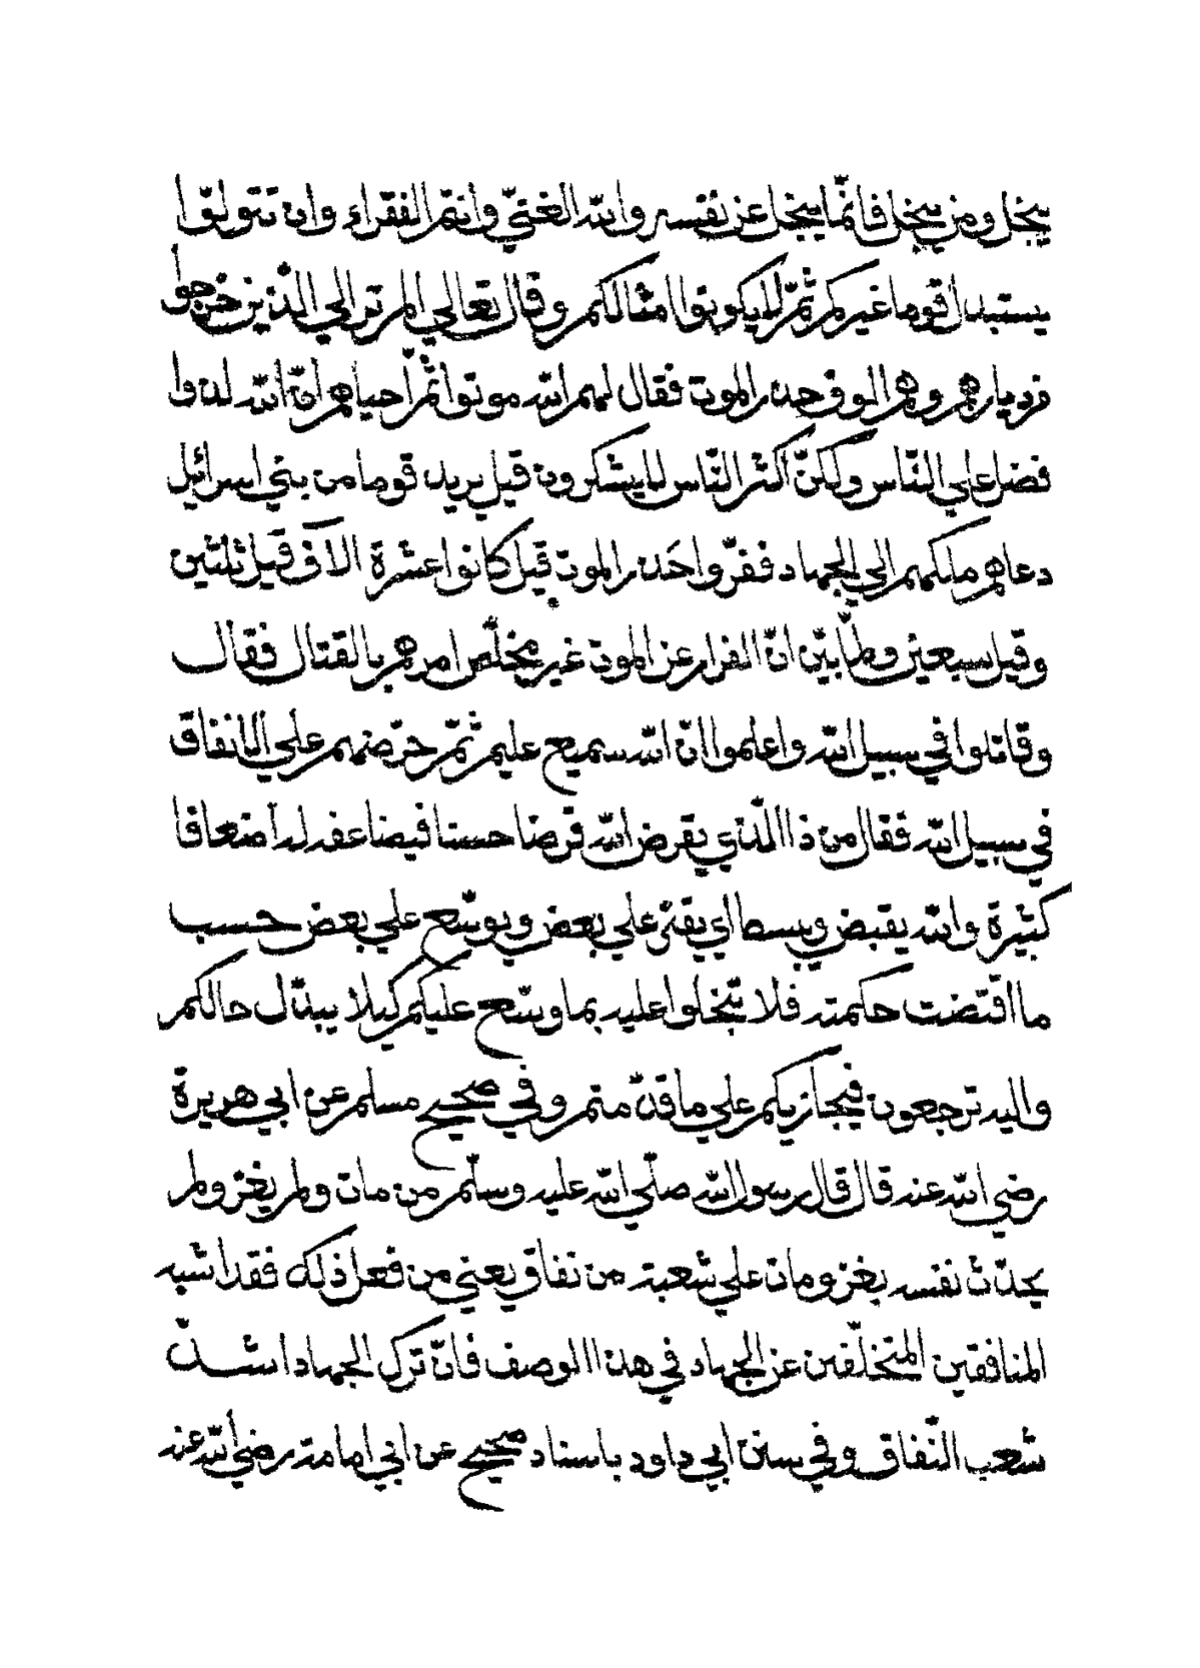 يبخل ومن يبخل فانّما يبخل عن نفسه والله الغنيّ وانتم الفقراء وان تتولّوا
يستبدل قوما غيركم ثمّ لايكونوا امثالكم وقال تعالي الم تر الي الذين خرجوا
من ديارهم وهم الوف حذر الموت فقال لهم الله موتوا ثمّ احياهم انّ الله لذوا
فضل علي النّاس ولكنّ اكثر النّاس لايشكرون قيل يريد قوما من بني اسرائيل
دعاهم ملكهم الي الجهاد ففرّوا حَذر الموت قيل كانوا عشرة الآف قيل ثلثين
وقيل سبعين ولمّا بيّن انّ الفرار عن الموت غير مخلّص امرهم بالقتال فقال
وقاتلوا في سبيل الله واعلموا انّ الله سميع عليم ثمّ حرّضهم علي الانفاق
في سبيل الله فقال من ذا الّذي يقرض الله قرضا حسنا فيضاعفه له اضعافا
كثيرة والله يقبض ويبسط اي يقتر علي بعض ويوسّع علي بعض حسب
ما اقتضت حكمته فلا تبخلوا عليه بما وسّع عليكم كيلا يبدّل حالكم
واليه ترجعون فيجازيكم علي ما قدّ متم وفي صحيح مسلم عن ابي هريرة
رضي الله عنه قال قال رسول الله صلّي الله عليه وسلّم من مات ولم يغز ولم
يحدّث نفسه بغزو مات علي شعبة من نفاق يعني من فعل ذلك فقد اشبه
المنافقين المتخلّفين عن الجهاد في هذا الوصف فانّ ترك الجهاد اشدّ
شعب النّفاق وفي سنن ابي داود باسناد صحيح عن ابي امامة رضي الله عنه